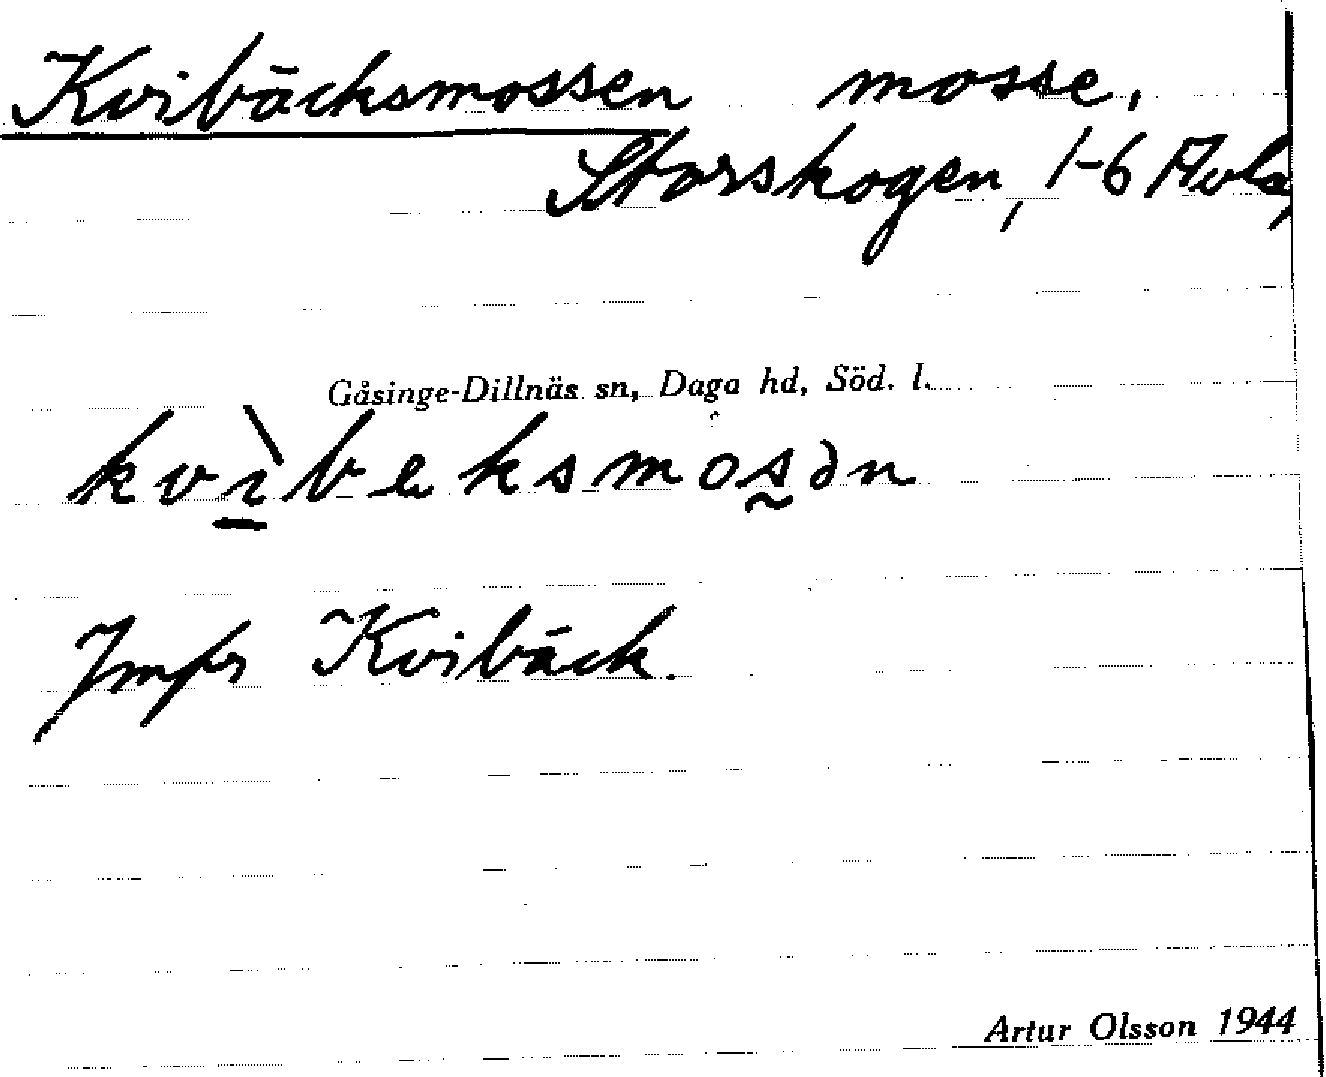 Kvibäcksmossen mosse,
Storskogen, 1-6 Avla,
Gåsinge-Dillnäs sn, Daga hd, Söd. l.
kvìbeksmosən
Jmfr Kvibäck.
Artur Olsson 1944